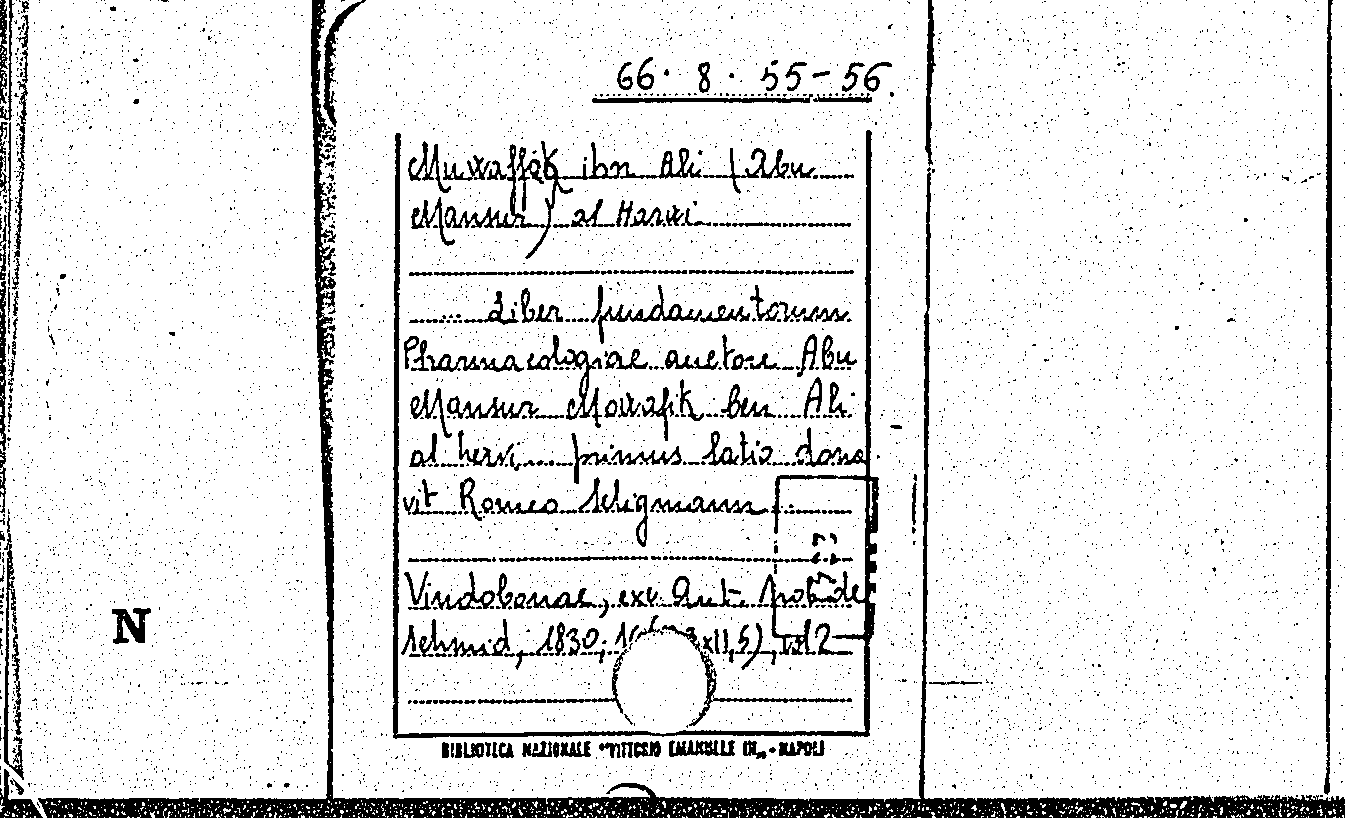 66. 8. 55-56.
Muwaffak ibn Ali (Abu
Mansur) al Harwi
... Liber fundamentorum
Pharmacologiae auctore Abu
Mansur Mowafik ben Ali
al hervi... primus latio dona
vit Romeo Seligmann.
Vindobonae, ex Ant. nob. de
Schmid, 1830; x11,5), vol 2
N
BIBLIOTECA NAZIONALE "VITTORIO EMANUELE III„ - NAPOLI